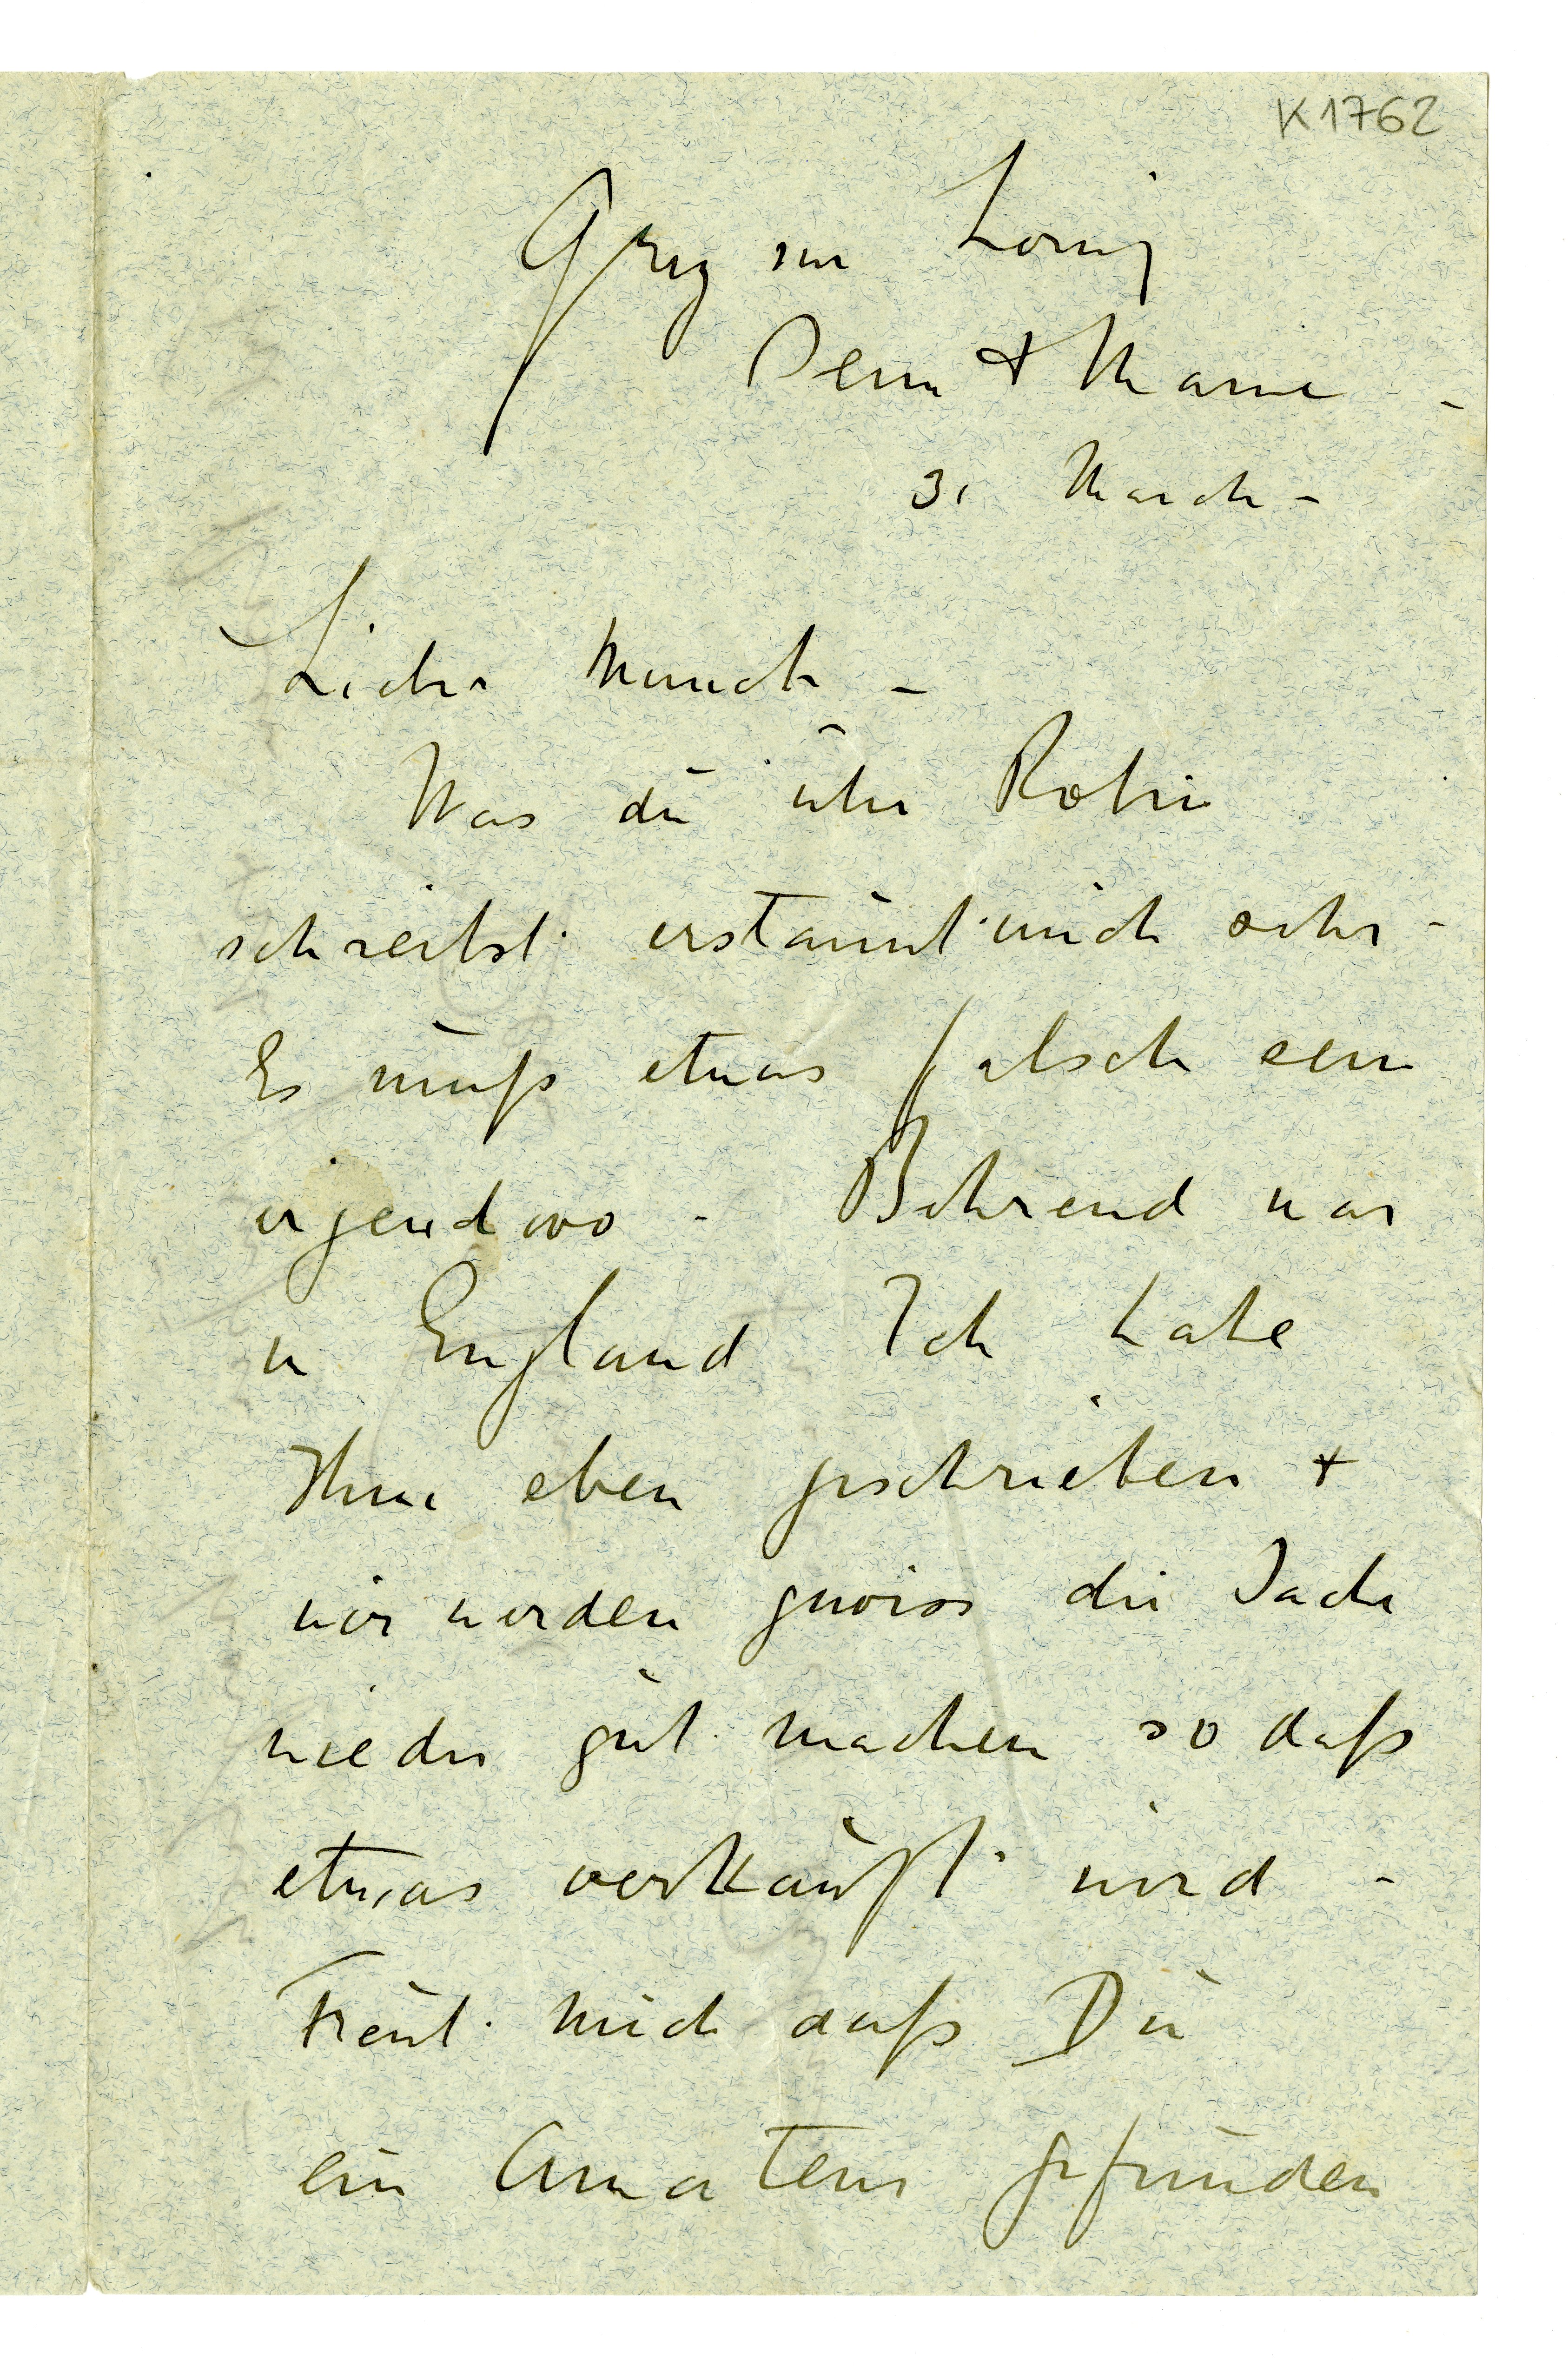 K1762
Grez sur Loing
Seine & Marne -
31 March -
Lieber Munch -
Was du über Rohn
schreibst erstaunt mich sehr -
Es muss etwas falsch sein
irgendwo - Behrend war
in England Ich habe
Ihm eben geschrieben +
wir werden gewiss die Sache
wieder gut machen so daß
etwas verkauft wird -
Freut mich daß Du
ein Amateur gefunden